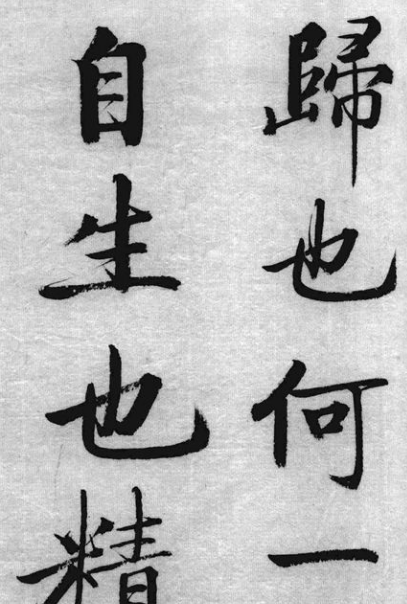 歸也何一
自生也精